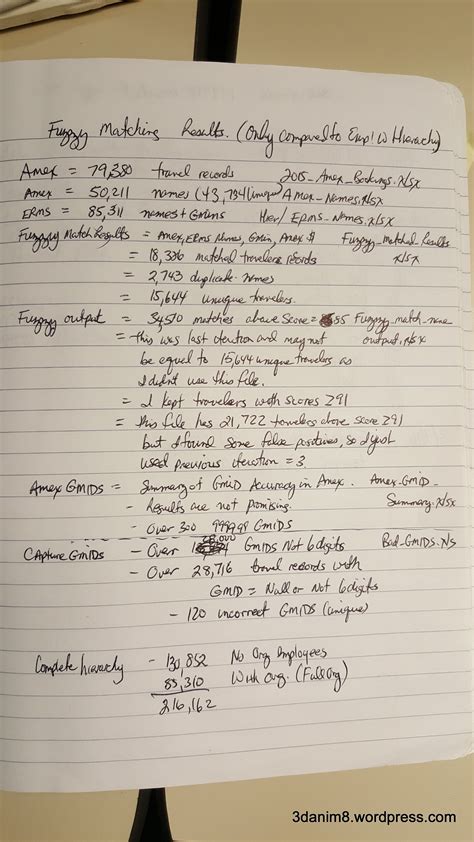 Fuzzy Matching Results. (Only compared to Emp! w Hierarchy)
Amex = 79,380 travel records 2015_Amex_Bookings.xlsx
Amex = 50,211 names (43,734 unique) Amex_Names.xlsx
ERMS = 85,311 names + Gmins Hier/ERMS_Names.xlsx
Fuzzy Match Results = Amex, ERMS Names, Gmin, Amex $ Fuzzy_Matched_Results
= 18,336 matched travelers records xlsx
= 2,743 duplicate names
= 15,644 unique travelers.
Fuzzy output = 34,510 matches above Score = 55 Fuzzy_match_name
= this was last iteration and may not output.xlsx
be equal to 15,644 unique travelers as
I didn't use this file.
= I kept travelers with scores ≥91
= this file has 21,722 travelers above score ≥91
but I found some false positives, so I just
used previous iteration = 3.
Amex GMIDS = Summary of GMID Accuracy in Amex. Amex_GMID_
- Results are not promising. Summary.xlsx
- Over 300 999999 GMIDs
28,000
Capture GMIDS - Over GMIDs Not 6 digits Bad_GMIDS.xls
- Over 28,716 travel records with
GMID = Null or Not 6 digits
- 120 incorrect GMIDs (unique)
Complete hierarchy - 130,852 No Org Employees
85,310 With Org. (Full Org)
216,162
3danim8.wordpress.com